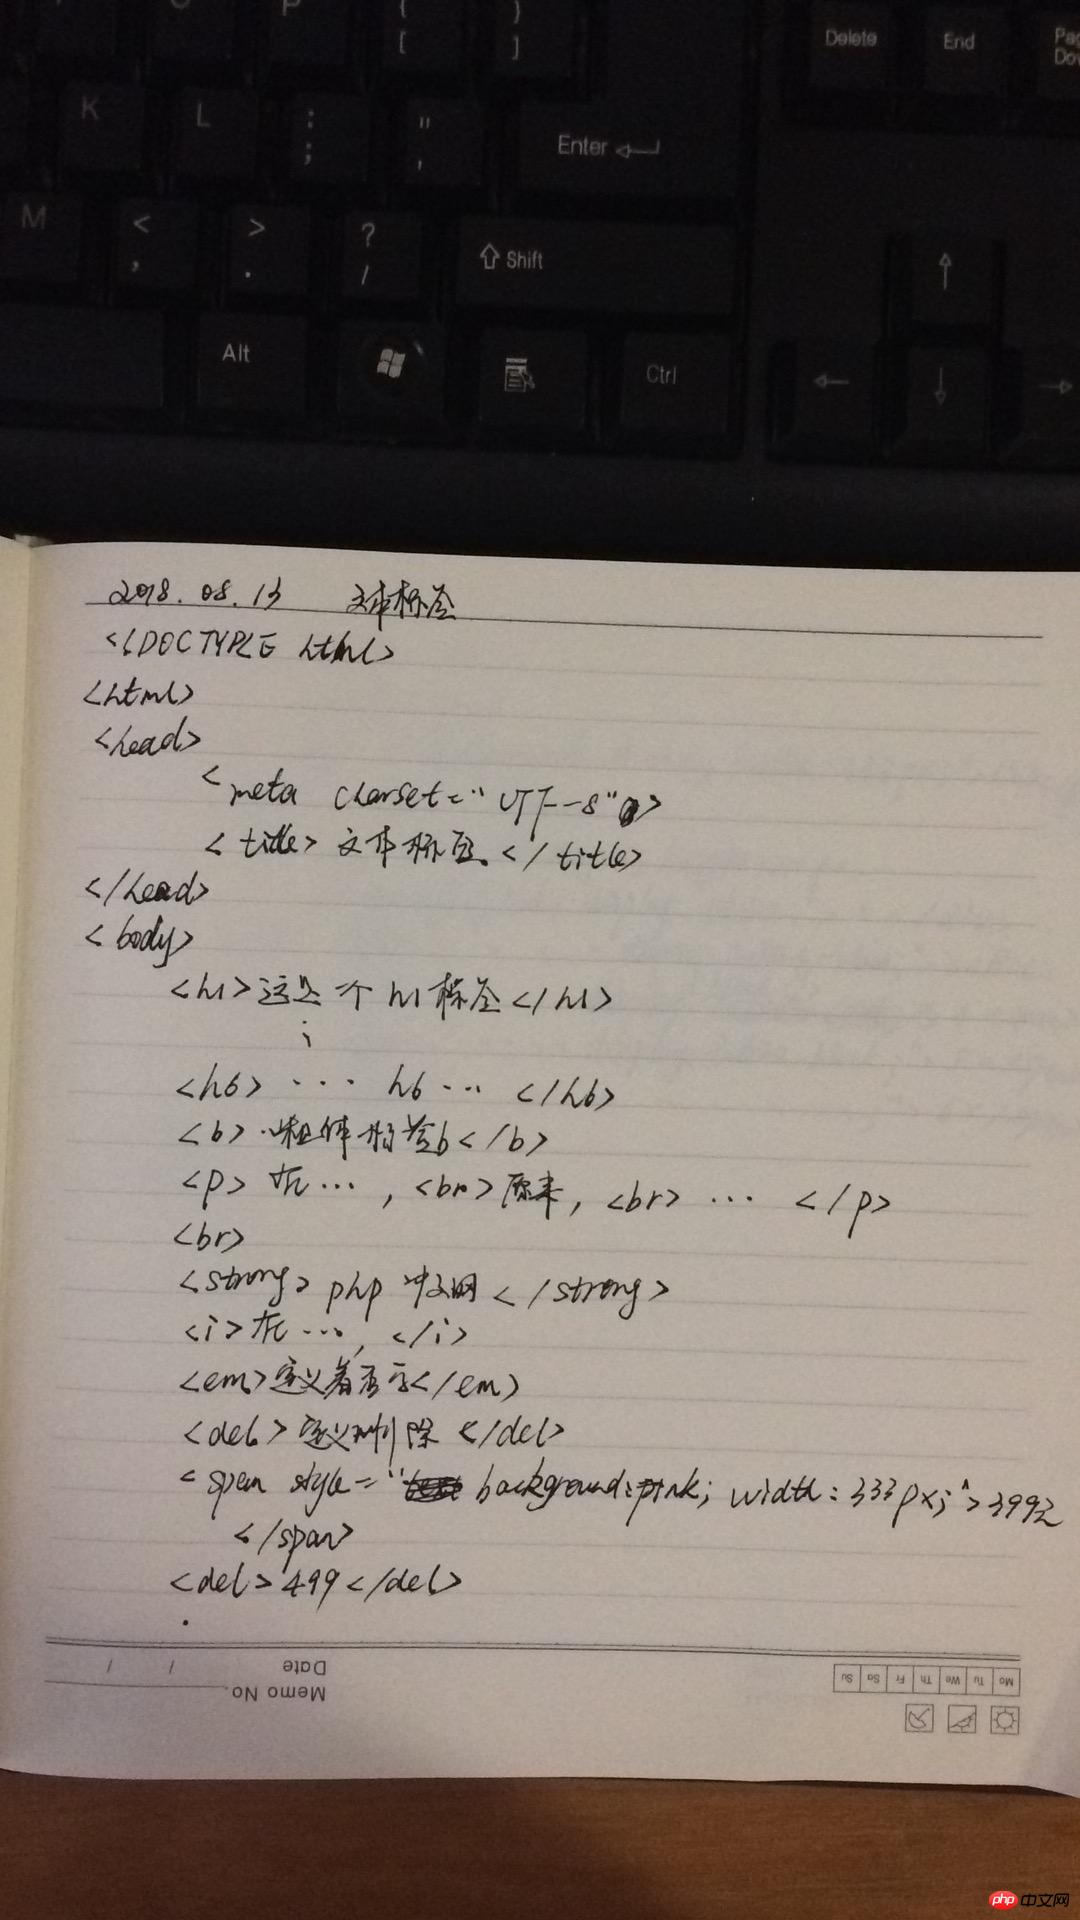 P { }
[ ]
Delete End
K L : "
; ,
Enter
M < > ?
, . /
Shift
Alt
Ctrl
2018.08.13 文本标签
<!DOCTYPE html>
<html>
<head>
<meta charset="UTF-8">
<title>文本标签</title>
</head>
<body>
<h1>这是一个h1标签</h1>
<h6> ··· h6 ··· </h6>
<b>粗体标签b</b>
<p> 在···, <br>原来, <br> ··· </p>
<br>
<strong>php中文网</strong>
<i>在···, </i>
<em>定义着重</em>
<del>定义删除</del>
<span style="background:pink; width:333px;">399
</span>
<del>499</del>
Mo Tu We Th Fr Sa Su
Memo No.
Date / /
php 中文网